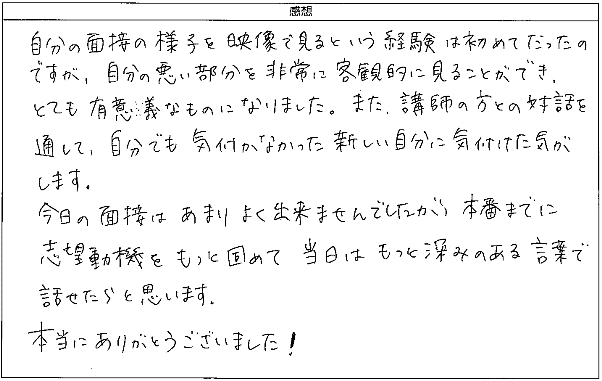 感想
自分の面接の様子を映像で見るという経験は初めてだったの
ですが、自分の悪い部分を非常に客観的に見ることができ、
とても有意義なものになりました。また、講師の方との対話を
通して、自分でも気付かなかった新しい自分に気付けた気が
します。
今日の面接はあまりよく出来ませんでしたが、本番までに
志望動機をもっと固めて当日はもっと深みのある言葉で
話せたらと思います。
本当にありがとうございました！